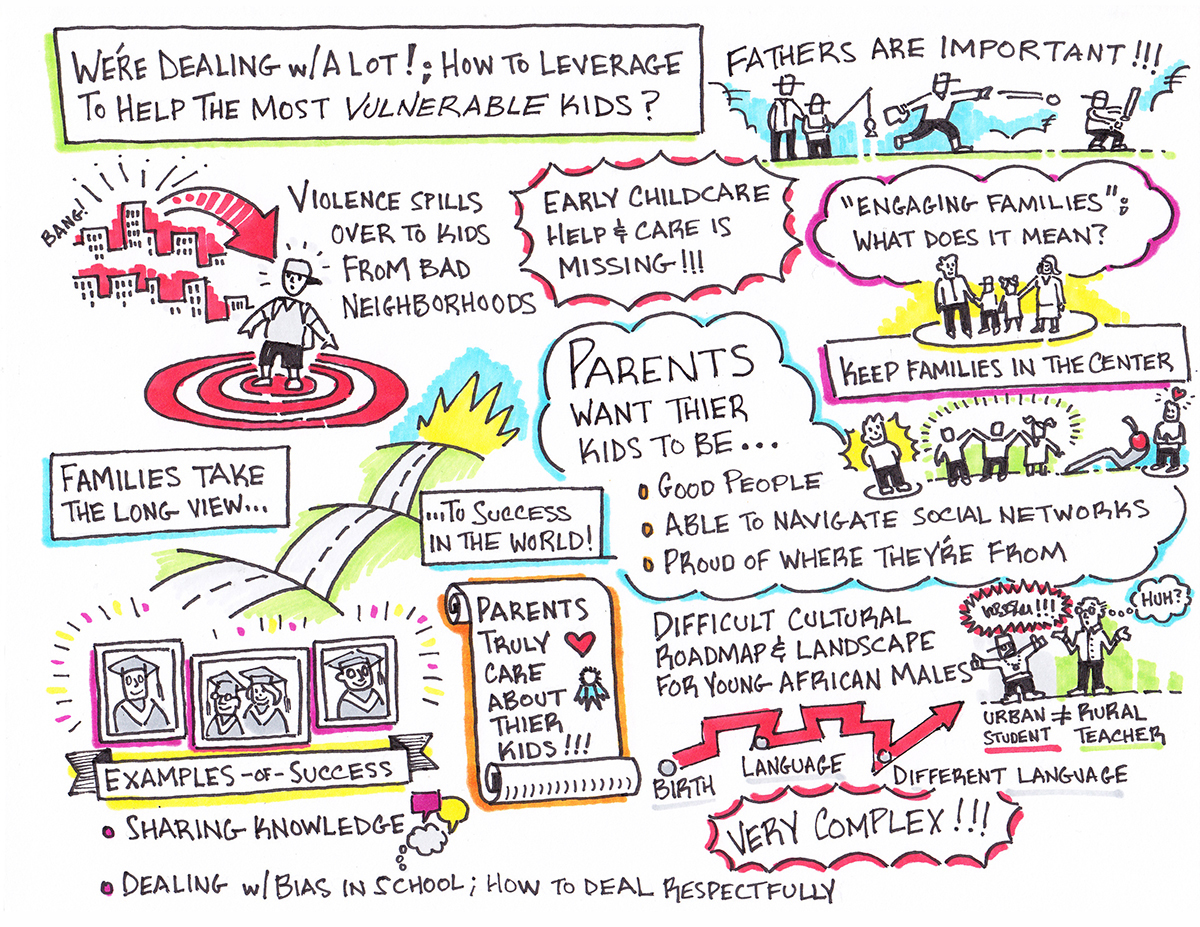 WE'RE DEALING W/A LOT!; HOW TO LEVERAGE
TO HELP THE MOST VULNERABLE KIDS?
FATHERS ARE IMPORTANT!!!
BANG!
VIOLENCE SPILLS
OVER TO KIDS
FROM BAD
NEIGHBORHOODS
EARLY CHILDCARE
HELP & CARE IS
MISSING!!!
"ENGAGING FAMILIES";
WHAT DOES IT MEAN?
KEEP FAMILIES IN THE CENTER
PARENTS
WANT THIER
KIDS TO BE...
GOOD PEOPLE
ABLE TO NAVIGATE SOCIAL NETWORKS
PROUD OF WHERE THEY'RE FROM
FAMILIES TAKE
THE LONG VIEW...
...TO SUCCESS
IN THE WORLD!
EXAMPLES-OF-SUCCESS
• SHARING KNOWLEDGE
• DEALING W/BIAS IN SCHOOL; HOW TO DEAL RESPECTFULLY
PARENTS
TRULY
CARE
ABOUT
THIER
KIDS!!!
DIFFICULT CULTURAL
ROADMAP & LANDSCAPE
FOR YOUNG AFRICAN MALES
HUH?
URBAN ≠ RURAL
STUDENT TEACHER
BIRTH
LANGUAGE
DIFFERENT LANGUAGE
VERY COMPLEX!!!